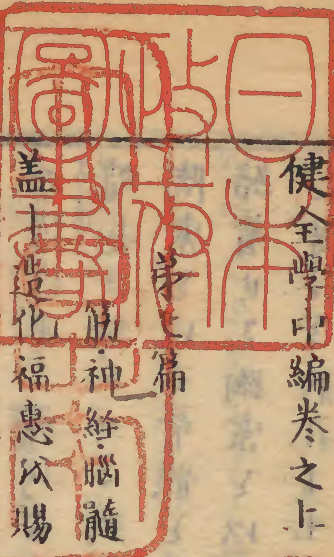 健全學中編卷之上
第七篇
筋神経腦髓
盖造化福惠以賜
日本
政府
圖書